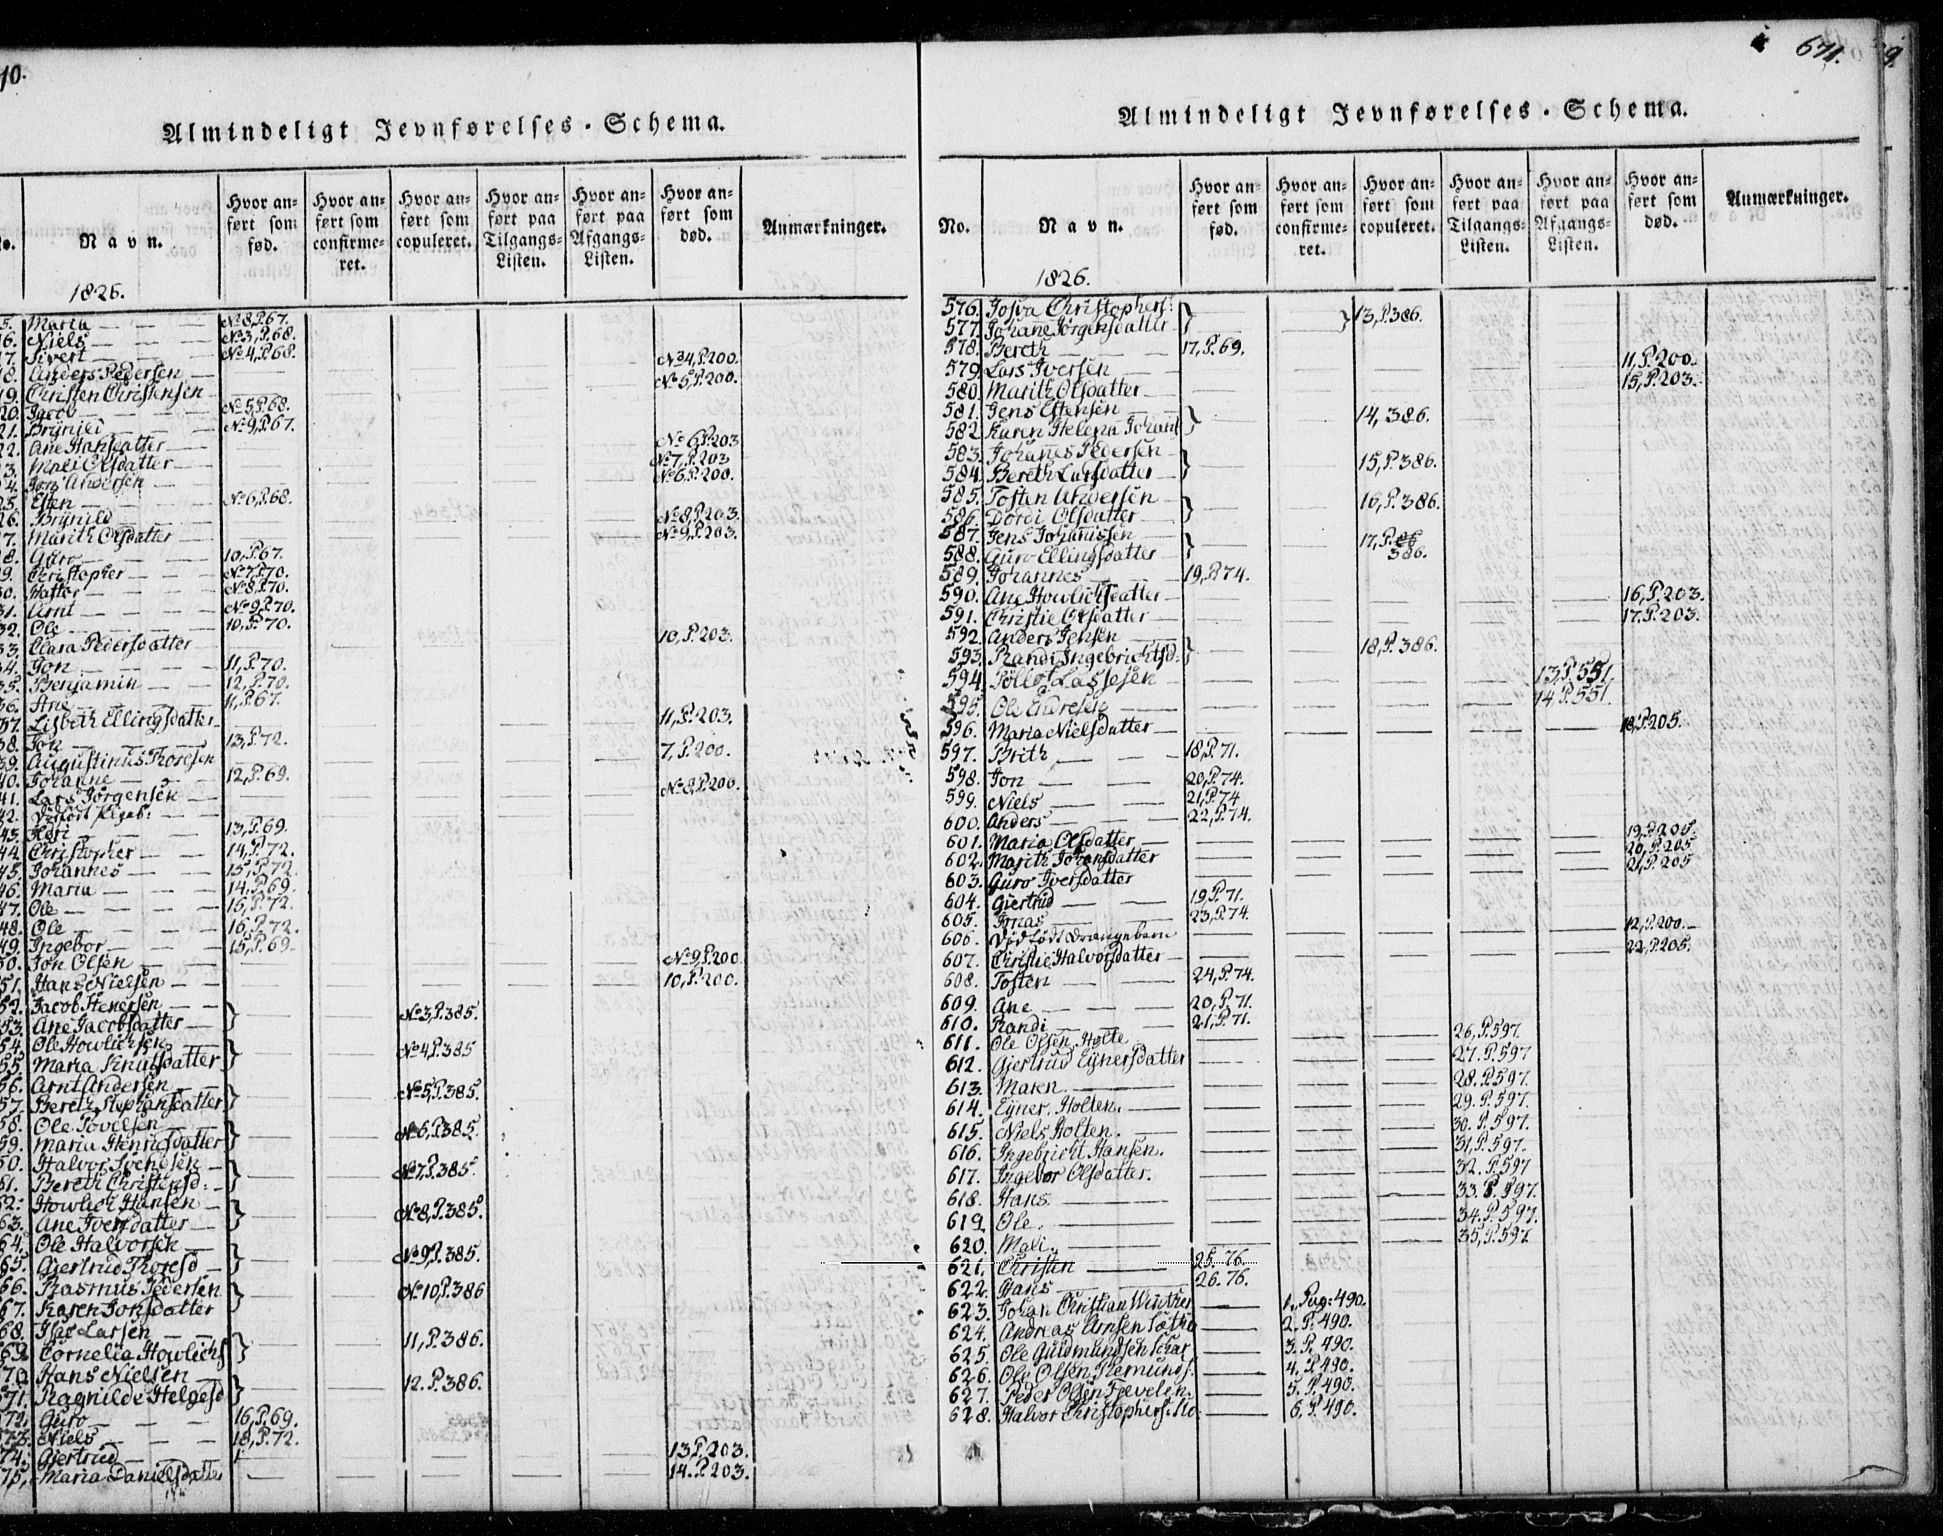 10.
Almindeligt Jevnførelses-Schema.
No. | Navn. | Hvor anført som fød. | Hvor anført som confirmeret. | Hvor anført som copuleret. | Hvor anført paa Tilgangs-Listen. | Hvor anført paa Afgangs-Listen. | Hvor anført som død. | Anmærkninger.
1826.
5. Maria — No 8, P. 67.
16. Niels — No 3, P. 68.
17. Sivert — No 4, P. 68.
18. Anders Pedersen — No 4, P. 200.
19. Christen Christensen — No 5, P. 200.
20. Jacob — No 5, P. 68.
21. Brÿnild — No 9, P. 67.
22. Ane Hansdatter — No 6, P. 203
23. Mali Olsdatter — No 7, P. 203
24. Jon Andersen — No 6, P. 200.
25. Esten — No 6, P. 68.
26. Brÿnild — No 8, P. 203.
27. Marith Olsdatter — No 9, P. 203.
28. Guro — 10, P. 67.
29. Christopher — No 7, P. 70.
30. Haftor — No 8, P. 70.
31. Arnt — No 9, P. 70.
32. Ole — 10, P. 70.
33. Clara Pedersdatter — 10, P. 203.
34. Jon — 11, P. 70.
35. Benjamin — 12, P. 70.
36. Ane — 11, P. 67.
37. Lisbeth Ellingsdatter — 11, P. 203.
38. Jon — 13, P. 72.
39. Augustinus Thoresen — 7, P. 200.
40. Johanne — 12, P. 69.
41. Lars Jørgensen — No 8, P. 200.
42. Dødfødt Pigeb:
43. Kari — 13, P. 69.
44. Christopher — 14, P. 72.
45. Johannes — 15, P. 72.
46. Maria — 14, P. 69.
47. Ole — 16, P. 72.
48. Ole — 16, P. 72.
49. Ingebor — 15, P. 69.
50. Jon Olsen — No 9, P. 200
51. Hans Nielsen — 10, P. 200.
52. Jacob Stenersen
53. Ane Jacobsdatter } No 3, P. 385.
54. Ole Howlichsen
55. Maria Knutsdatter } No 4, P. 385
56. Arnt Andersen
57. Bereth Stephansdatter } No 5, P. 385.
58. Ole Povelsen
59. Maria Henrichsdatter } No 6, P. 385.
60. Halvor Svendsen
61. Bereth Christensd: } No 7, P. 385.
62. Howlich Hansen
63. Ane Iversdatter } No 8, P. 385.
64. Ole Halvorsen
65. Gjertrud Thoresd } No 9, P. 385.
66. Rasmus Pedersen
67. Karen Jonsdatter } No 10, P. 386
68. Isac Larsen
69. Cornelia Howlichs } 11, P. 386.
70. Hans Nielsen
571. Ragnilde Helgesd } 12. P. 386.
72. Guro — 16, P. 69.
573. Niels — 18, P. 72.
74. Gjertrud — 13 P. 203.
75. Maria Danielsdatter — 14. P. 203.
671.
9.
Almindeligt Jevnførelses-Schema.
No. | Navn. | Hvor anført som fød. | Hvor anført som confirmeret. | Hvor anført som copuleret. | Hvor anført paa Tilgangs-Listen. | Hvor anført paa Afgangs-Listen. | Hvor anført som død. | Anmærkninger.
1826.
576. Josva Christophers:
577. Johane Jørgensdatter } 13, P. 386.
578. Bereth — 17, P. 69.
579. Lars Iversen — 11, P. 200.
580. Marith Olsdatter — 15, P. 203.
581. Jens Estensen
582 Karen Helena Johans } 14, 386.
583. Johannes Pedersen
584. Bereth Larsdatter } 15, P. 386.
585. Tosten Andersen
586. Dordi Olsdatter } 16, P. 386.
587. Jens Johanissen
588. Guro Ellingsdatter } 17, P. 386.
589. Johannes — 19, P. 74.
590. Ane Howlichsdatter — 16, P. 203.
591. Christie Olsdatter — 17. P. 203.
592. Anders Jensen
593. Randi Ingebrichtsd. } 18, P. 386.
594. Lassesen — 13, P. 551.
595. Ole Endresen — 14. P. 551.
596. Maria Nielsdatter — 18, P. 205.
597. Brith — 18, P. 71.
598. Jon — 20, P. 74.
599. Niels — 21, P. 74
600. Anders — 22, P. 74.
601. Maria Olsdatter — 19, P. 205.
602. Marith Johansdatter — 20, P. 205
603. Guro Iversdatter — 21, P. 205
604. Gjertrud — 19, P. 71.
605. Jonas — 23, P. 74.
606. Dødfødt Drengebarn — 12, P. 200.
607. Christie Halvorsdatter — 22, P. 205.
608. Tosten — 24, P. 74.
609. Ane — 20, P. 71.
610. Randi — 21, P. 71.
611. Ole Olsen Holte — 26, P. 597.
612. Gjertrud Ejnersdatter — 27. P. 597
613. Maren — 28. P. 597.
614. Ejner Holten. — 29. P. 597.
615. Niels Holten. — 30. P. 597.
616. Ingebricht Hansen. — 31, P. 597.
617. Ingebor Olsdatter. — 32. P. 597
618. Hans — 33. P. 597.
619. Ole. — 34. P. 597.
620. Mali. — 35, P. 597
621. Christen — 25. 76.
622. Hans — 26. 76.
623. Johan Christian Winther — 1., Pag: 490.
624. Andreas Arnsen — 2. P. 490.
625. Ole Gudmundsen — 3. P. 490.
626. Ole Olsen — 4, P. 490.
627. Peder Olsen — 5. P. 490.
628. Halvor Christophers. — 6. P. 490.